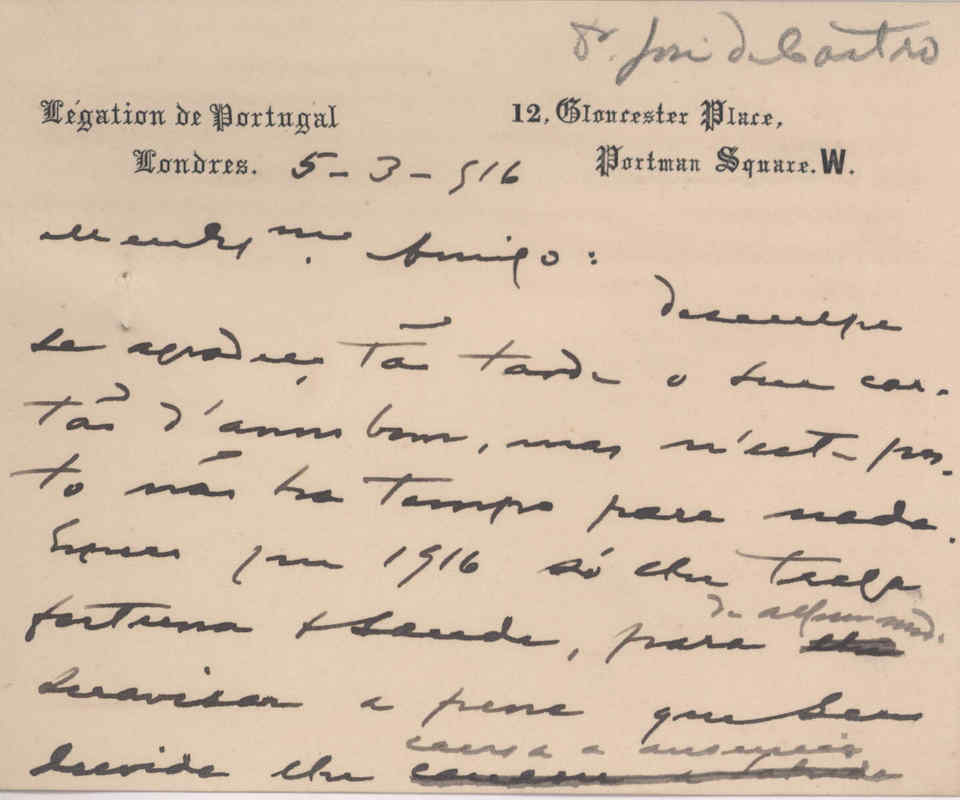 Dr. José de Castro
Légation de Portugal 12, Gloucester Place,
Londres. 5-3-916 Portman Square. W.
Amigo:
Desculpe
se agradeço tão tarde o seu car-
tão d'anno bom, mas n'est- pos-
to não ha tempo para nada.
Espero que 1916 só lhe traga
de algum modo
fortuna e saude, para
suavisar a pena que sem
causa a ausencia
duvida lhe